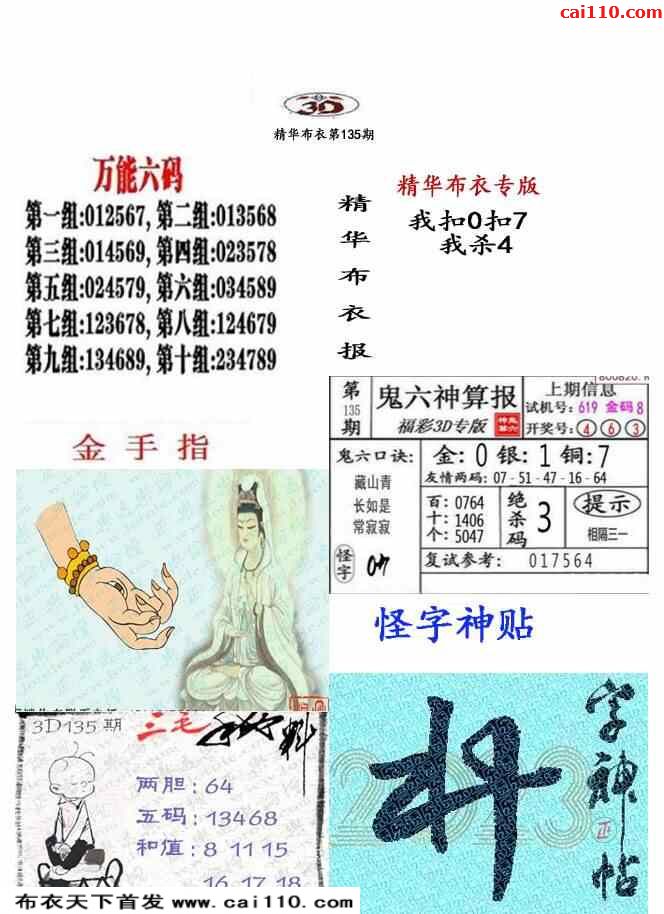 cai110.com
3D
精华布衣第135期
万能六码
第一组:012567, 第二组:013568
第三组:014569, 第四组:023578
第五组:024579, 第六组:034589
第七组:123678, 第八组:124679
第九组:134689, 第十组:234789
精华布衣报
精华布衣专版
我扣0扣7
我杀4
第135期
鬼六神算报
福彩3D专版
上期信息
试机号: 619 金码 8
开奖号: 4 6 3
鬼六口诀:
藏山青
长如是
常寂寂
怪字
金: 0 银: 1 铜: 7
友情两码: 07-51-47-16-64
百: 0764
十: 1406
个: 5047
绝杀码 3
提示
相隔三一
复试参考: 017564
金手指
怪字神贴
字神帖
3D135期
三毛
两胆: 64
五码: 13468
和值: 8 11 15
16 17 18
布衣天下首发 www.cai110.com